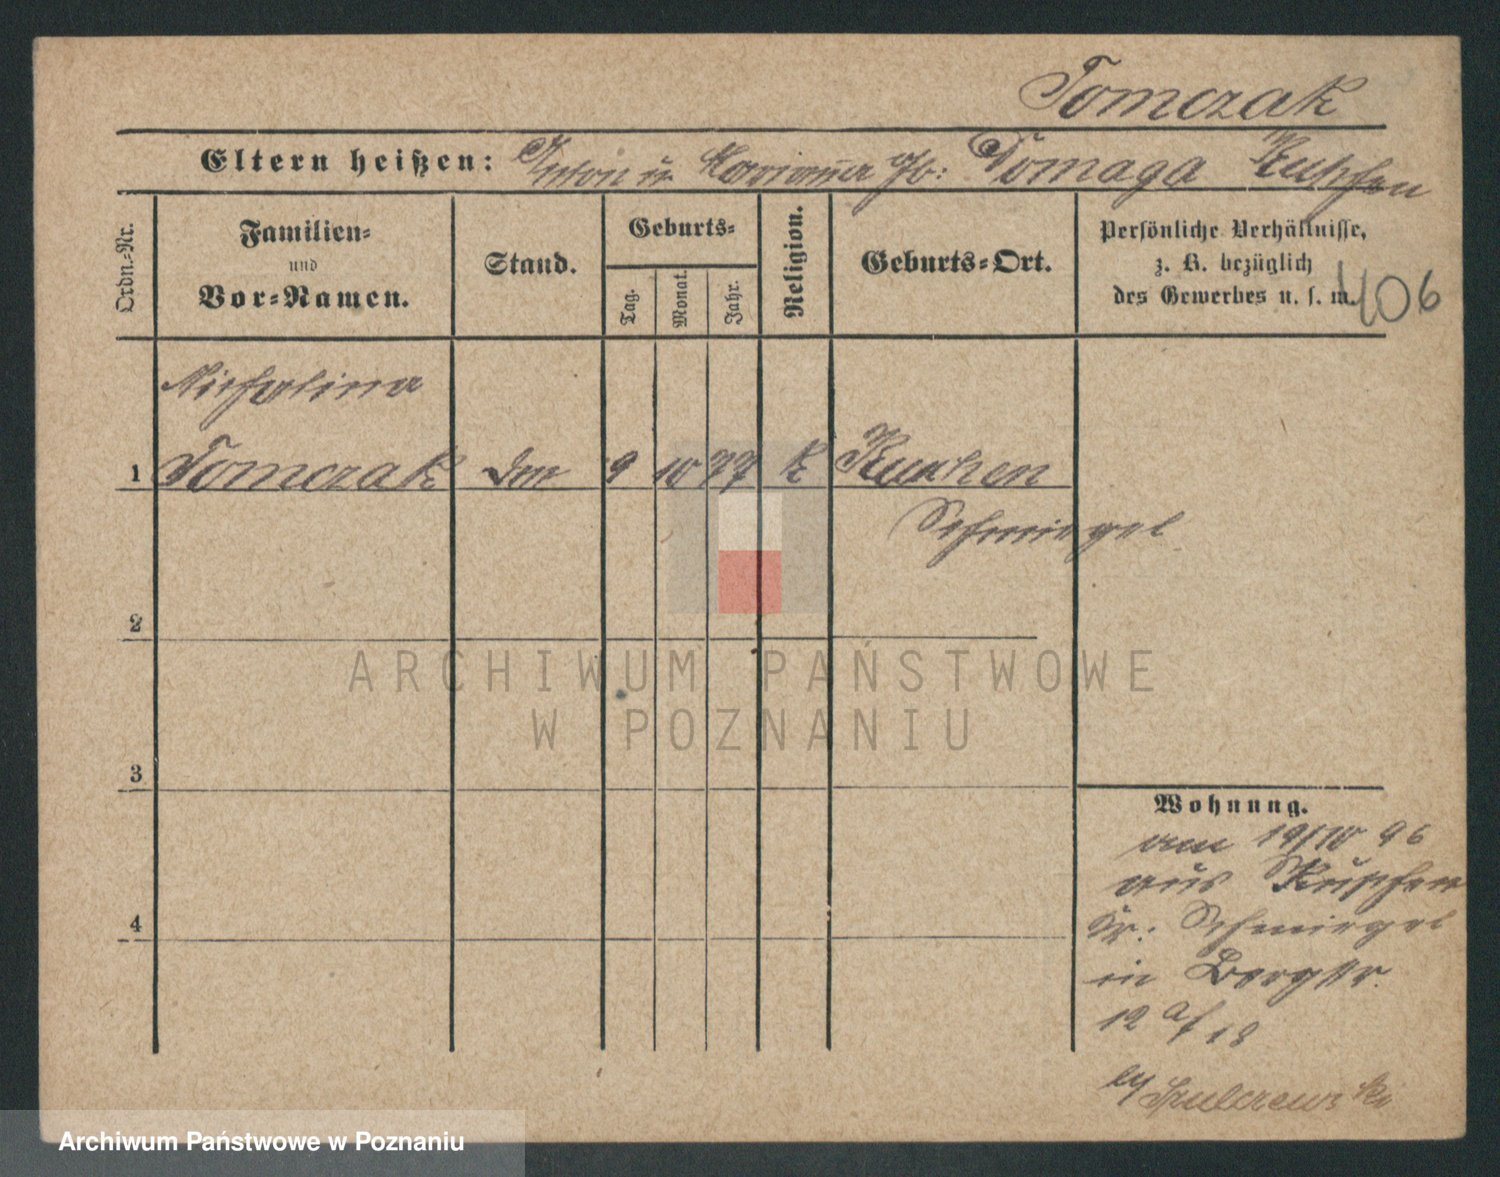 Tomczak
Eltern heißen: Anton u. Marianna gb: Tomaga
Ordn.-Nr.
Familien-
und
Vor-Namen.
Stand.
Geburts-
Tag.
Monat.
Jahr.
Religion.
Geburts-Ort.
Persönliche Verhältnisse,
z. B. bezüglich
des Gewerbes u. s. w.
406
1 Tomczak 9 10 77 k
Schmiegel
2
3
4
Wohnung.
am 19/10 96
aus
Kr. Schmiegel
in Bergstr.
12
18
ARCHIWUM PAŃSTWOWE
W POZNANIU
Archiwum Państwowe w Poznaniu